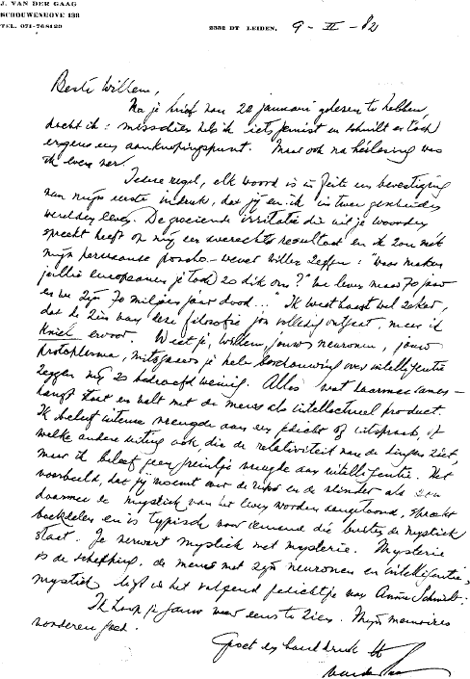 J. VAN DER GAAG
SCHOUWENHOVE 138
TEL. 071-768123
2332 DT LEIDEN,
9-II-82
Beste Willem,
Na je brief van 20 januari gelezen te hebben,
dacht ik: misschien heb ik iets gemist en schuilt er toch
ergens een aanknopingspunt. Maar ook na herlezing was
ik even ver.
Iedere regel, elk woord is in feite een bevestiging
van mijn eerste indruk, dat jij en ik in twee gescheiden
werelden leven. De groeiende irritatie die uit je woorden
spreekt heeft op mij een averechts resultaat en ik zou met
mijn Peruaanse willen zeggen: "Waar maken
jullie europeanen je toch zo dik om?" We leven maar 70 jaar
en we zijn 70 miljoen jaar dood..." Ik weet haast wel zeker,
dat de zin van deze filosofie jou volledig ontgaat, maar ik
kniel ervoor. Weet je, Willem, jouw neuronen, jouw
protoplasma, mitsgaders je hele beschouwing over intelligentie
zeggen mij zo bedroefd weinig. Alles wat daarmee samen-
hangt staat en valt met de mens als intellectueel product.
Ik beleef intense vreugde aan een gedicht of uitspraak, of
welke andere uiting ook, die de relativiteit van de dingen ziet,
maar ik beleef geen greintje vreugde aan intelligentie. Het
voorbeeld, dat jij noemt over de rups en de vlinder als zou
daarmee de mystiek van het leven worden aangetoond, spreekt
boekdelen en is typisch voor iemand die buiten de mystiek
staat. Je verwart mystiek met mysterie. Mysterie
is de schepping, de mens met zijn neuronen en intelligentie,
mystiek ligt in het volgend gedichtje van
Ik hoop je gauw weer eens te zien. Mijn memoires
vorderen goed.
Groet en handdruk